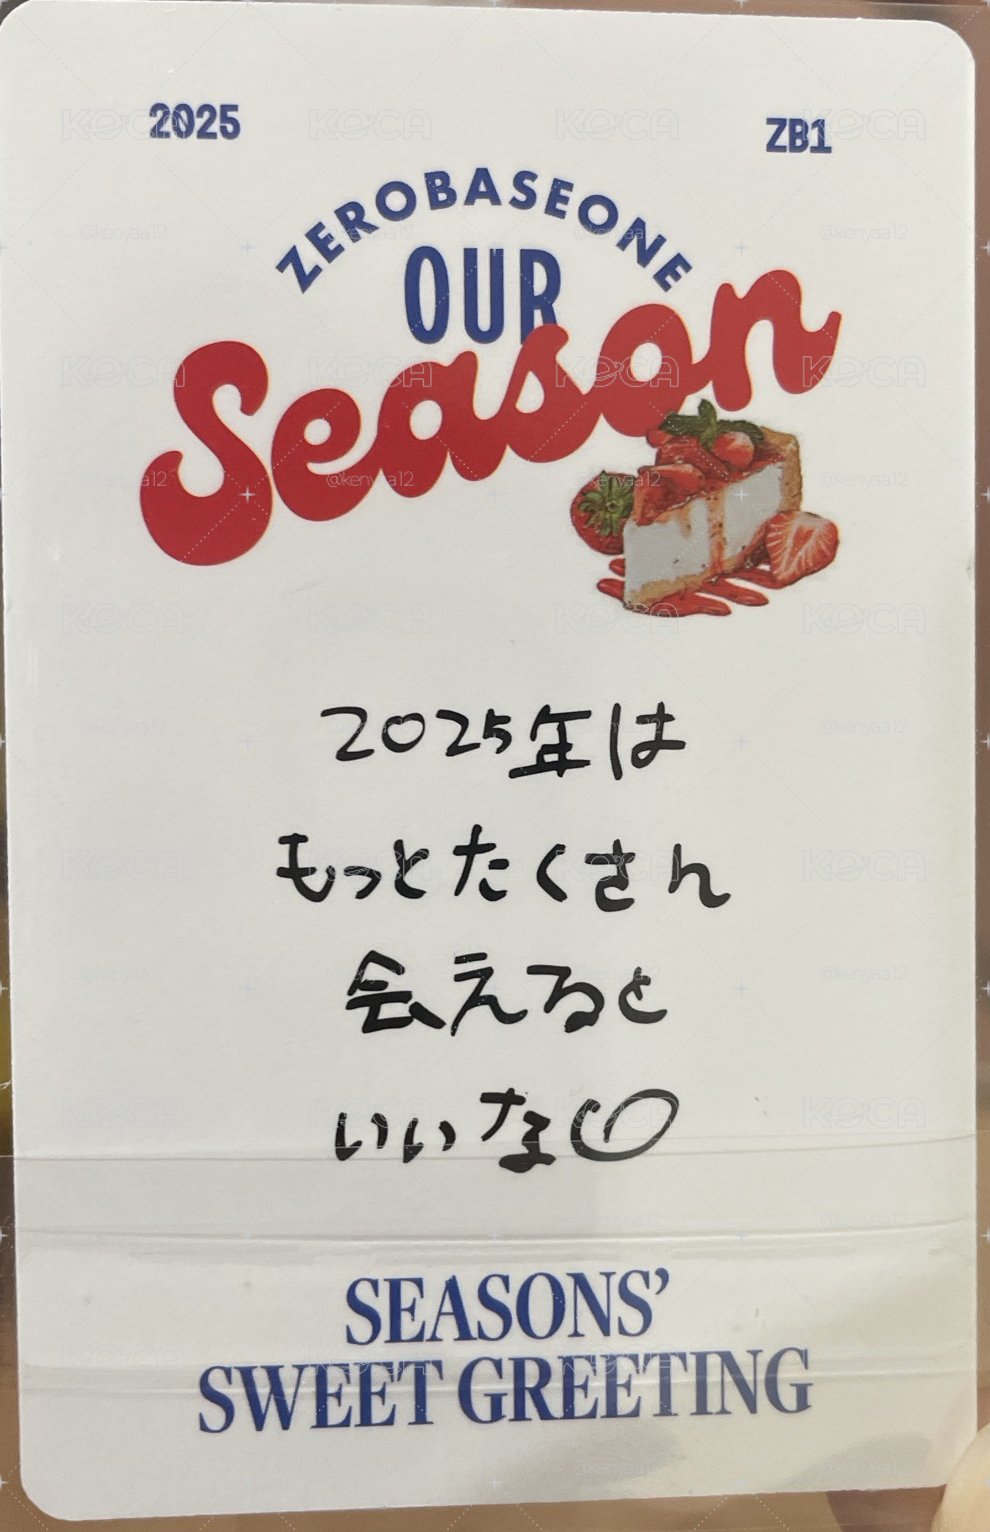 2025
ZB1
ZEROBASEONE
OUR
Season
2025年は
もっとたくさん
会えると
いいな♡
SEASONS'
SWEET GREETING
KOCA
@kenyaa12